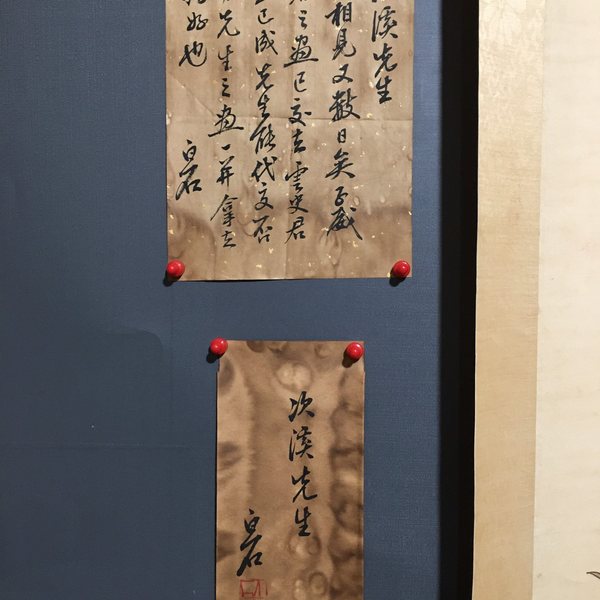 溪先生
相見又數日矣子威
之畫已交去雲史君
已成先生能代交否
先生之畫一并拿去
好也
白石
次溪先生
白石